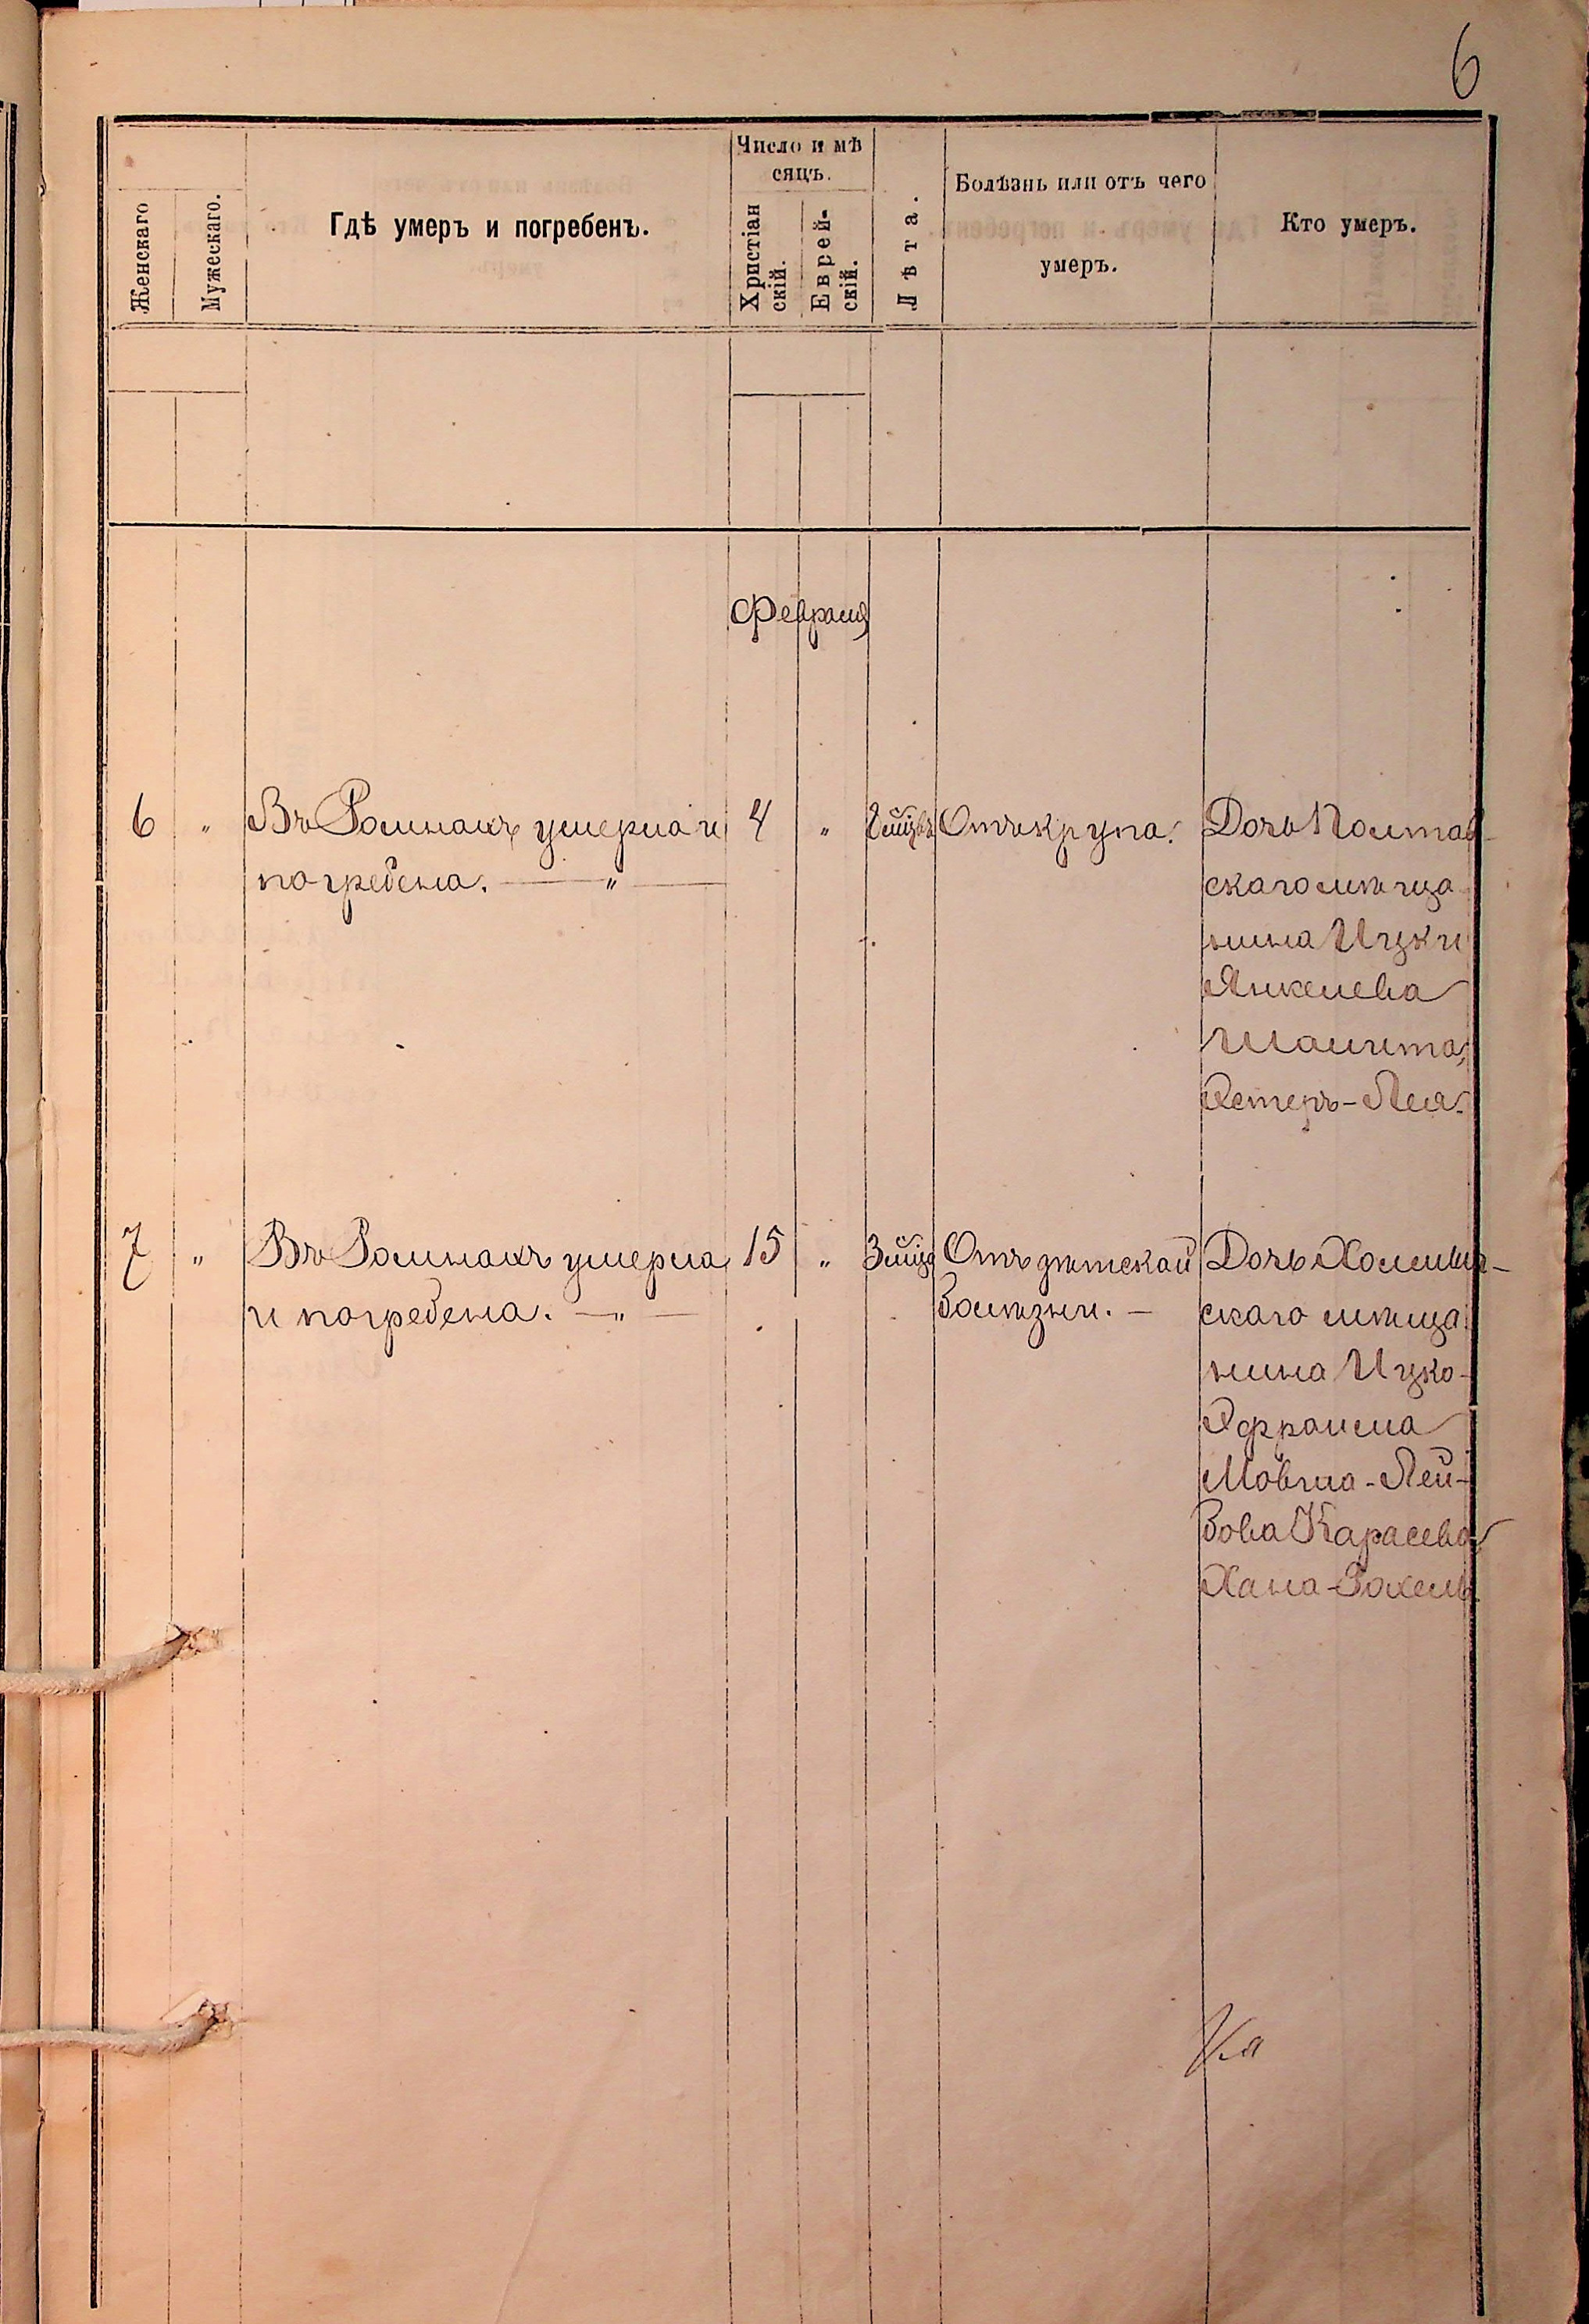 6
Женскаго
Мужескаго.
Гдѣ умеръ и погребенъ.
Число и мѣ
сяцъ.
Христіан
скій.
Еврей-
скій.
Лѣта.
Болѣзнь или отъ чего
умеръ.
Кто умеръ.
Февраля
6 „ Въ Ромнахъ умерла и
погребена. — „ —
4 „
Отъ крупа.
Дочь Полтав-
скаго мѣща
нина Ицки
Янкелева
Эстеръ-Лея.
7 „ Въ Ромнахъ умерла
и погребена. — „ —
15 „ 3
Отъ дѣтской
болѣзни. —
Дочь
скаго мѣща
нина Ицко-
Эфроима
Мовша-Лей-
бова Карасева
Хана-Рохель.